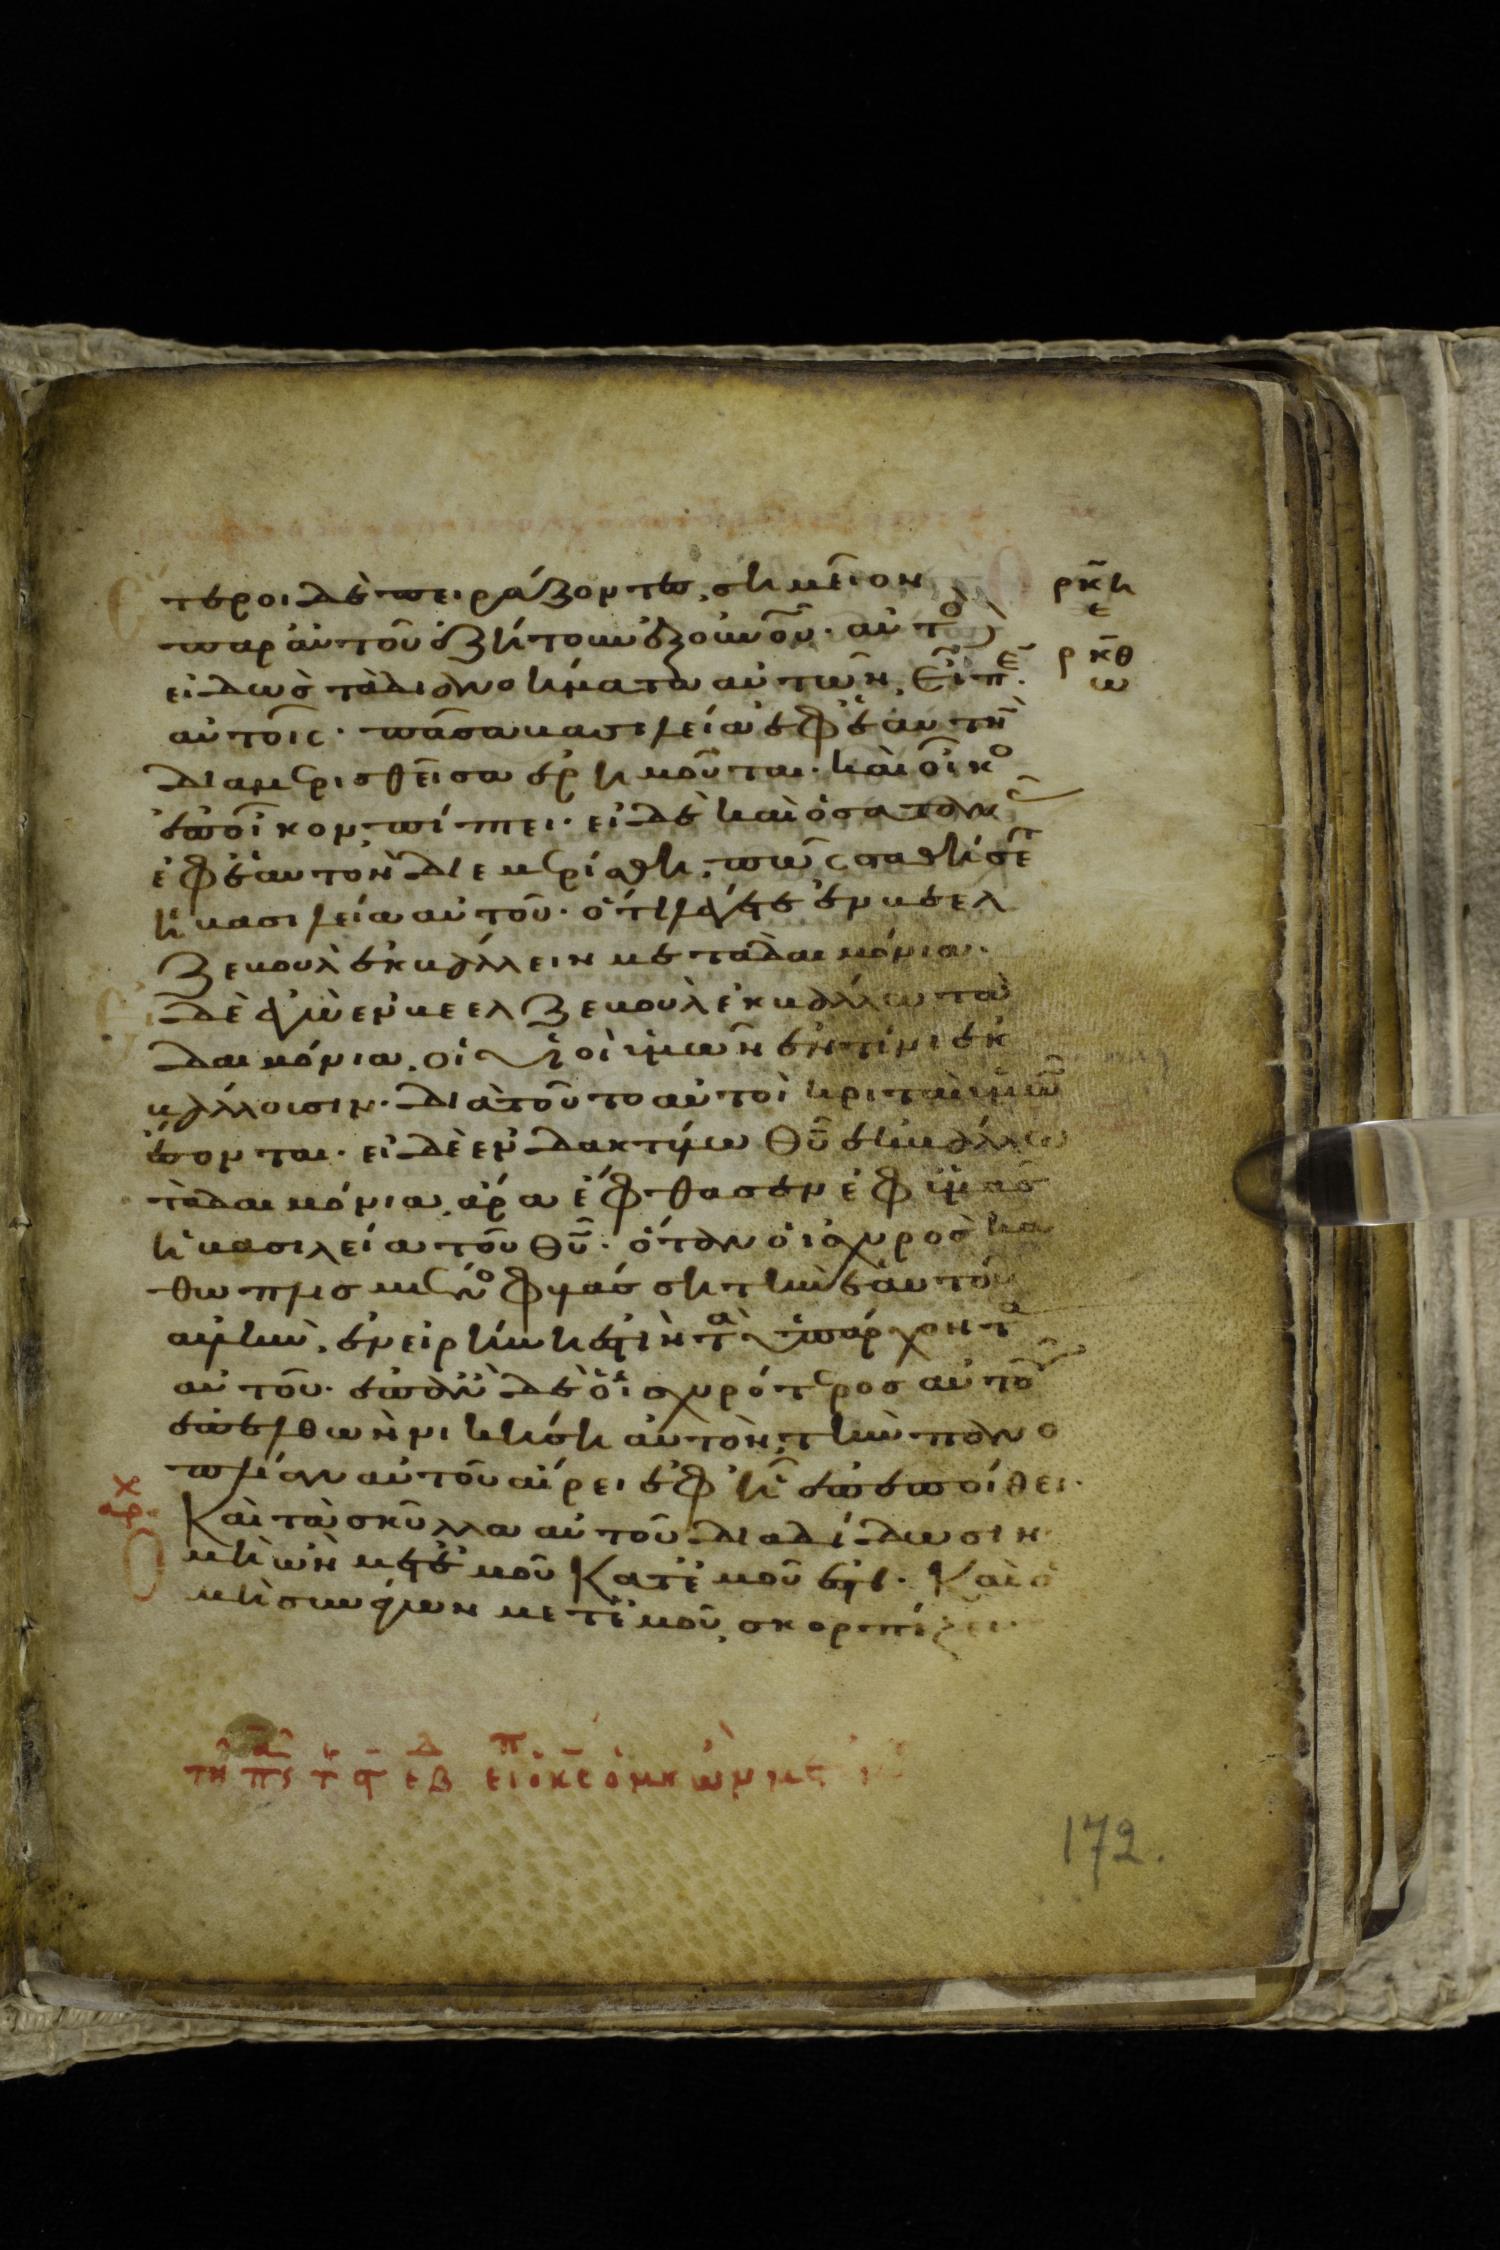 Ἕτεροι δὲ πειράζοντες, σημεῖον ρκη
παρ αὐτοῦ ἐζήτουν ἐξ οὐνοῦ· αὐτὸς ε
εἰδὼς τὰ διανοήματα αὐτῶν, εἶπεν ρκθ
αὐτοῖς· πᾶσα βασιλεία ἐφ ἑαυτὴν ω
διαμερισθεῖσα ἐρημοῦται· καὶ οἶκος
ἐπ οἶκον πίπτει· εἰ δὲ καὶ ὁ σατανᾶς
ἐφ ἑαυτὸν διεμερίσθη, πῶς σταθήσεται
ἡ βασιλεία αὐτοῦ· ὅτι λέγετε ἐν βεελ
ζεβουλ ἐκβάλλειν με τὰ δαιμόνια·
Εἰ δὲ ἐγὼ ἐν βεελζεβουλ ἐκβάλλω τὰ
δαιμόνια, οἱ υἱοὶ ὑμῶν ἐν τίνι ἐκ
βάλλουσιν· διὰ τοῦτο αὐτοὶ κριταὶ ὑμῶν
ἔσονται· εἰ δὲ ἐν δακτύλω θυ ἐκβάλλω
τὰ δαιμόνια, ἄρα ἔφθασεν ἐφ ὑμᾶς
ἡ βασιλεία τοῦ θυ· ὅταν ὁ ἰσχυρὸς κα
θωπλισμένος φυλάσση τὴν ἑαυτοῦ
αὐλὴν, ἐν εἰρήνη ἐστὶν τὰ ὑπάρχοντα
αὐτοῦ· ἐπὰν δὲ ὁ ἰσχυρότερος αὐτοῦ
ἐπελθὼν νικήση αὐτὸν, τὴν πανο
πλίαν αὐτοῦ αἴρει ἐφ ἧ ἐπεποίθει·
Καὶ τὰ σκῦλα αὐτοῦ διαδίδωσιν·
Ὁ μὴ ὢν μετ ἐμοῦ Κατ ἐμοῦ ἐστι· Καὶ ὁ
μὴ συνάγων μετ ἐμοῦ, σκορπίζει·
172.